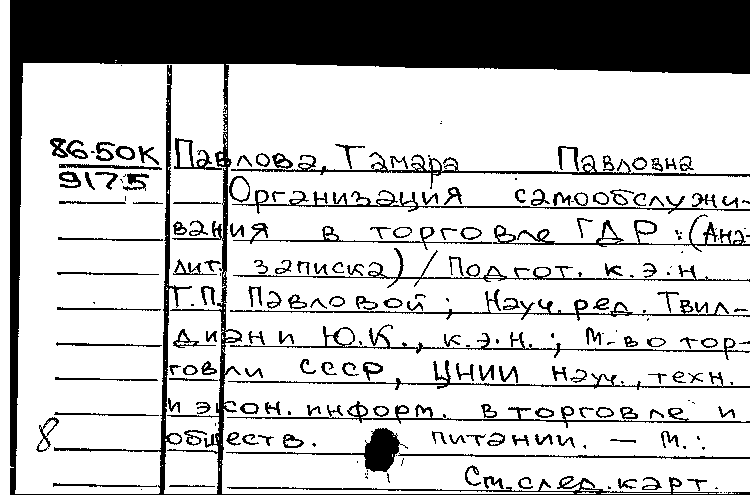 86-50К
9175
Павлова, Тамара Павловна
Организация самообслужи-
вания в торговле ГДР : (Ана-
лит. записка) / Подгот. к.э.н.
Т.П. Павловой ; Науч. ред. Твил-
диани Ю.К., к.э.н. ; М-во тор-
говли СССР, ЦНИИ науч., техн.
и экон. информ. в торговле и
8 обществ. питании. – М. :
См. след. карт.